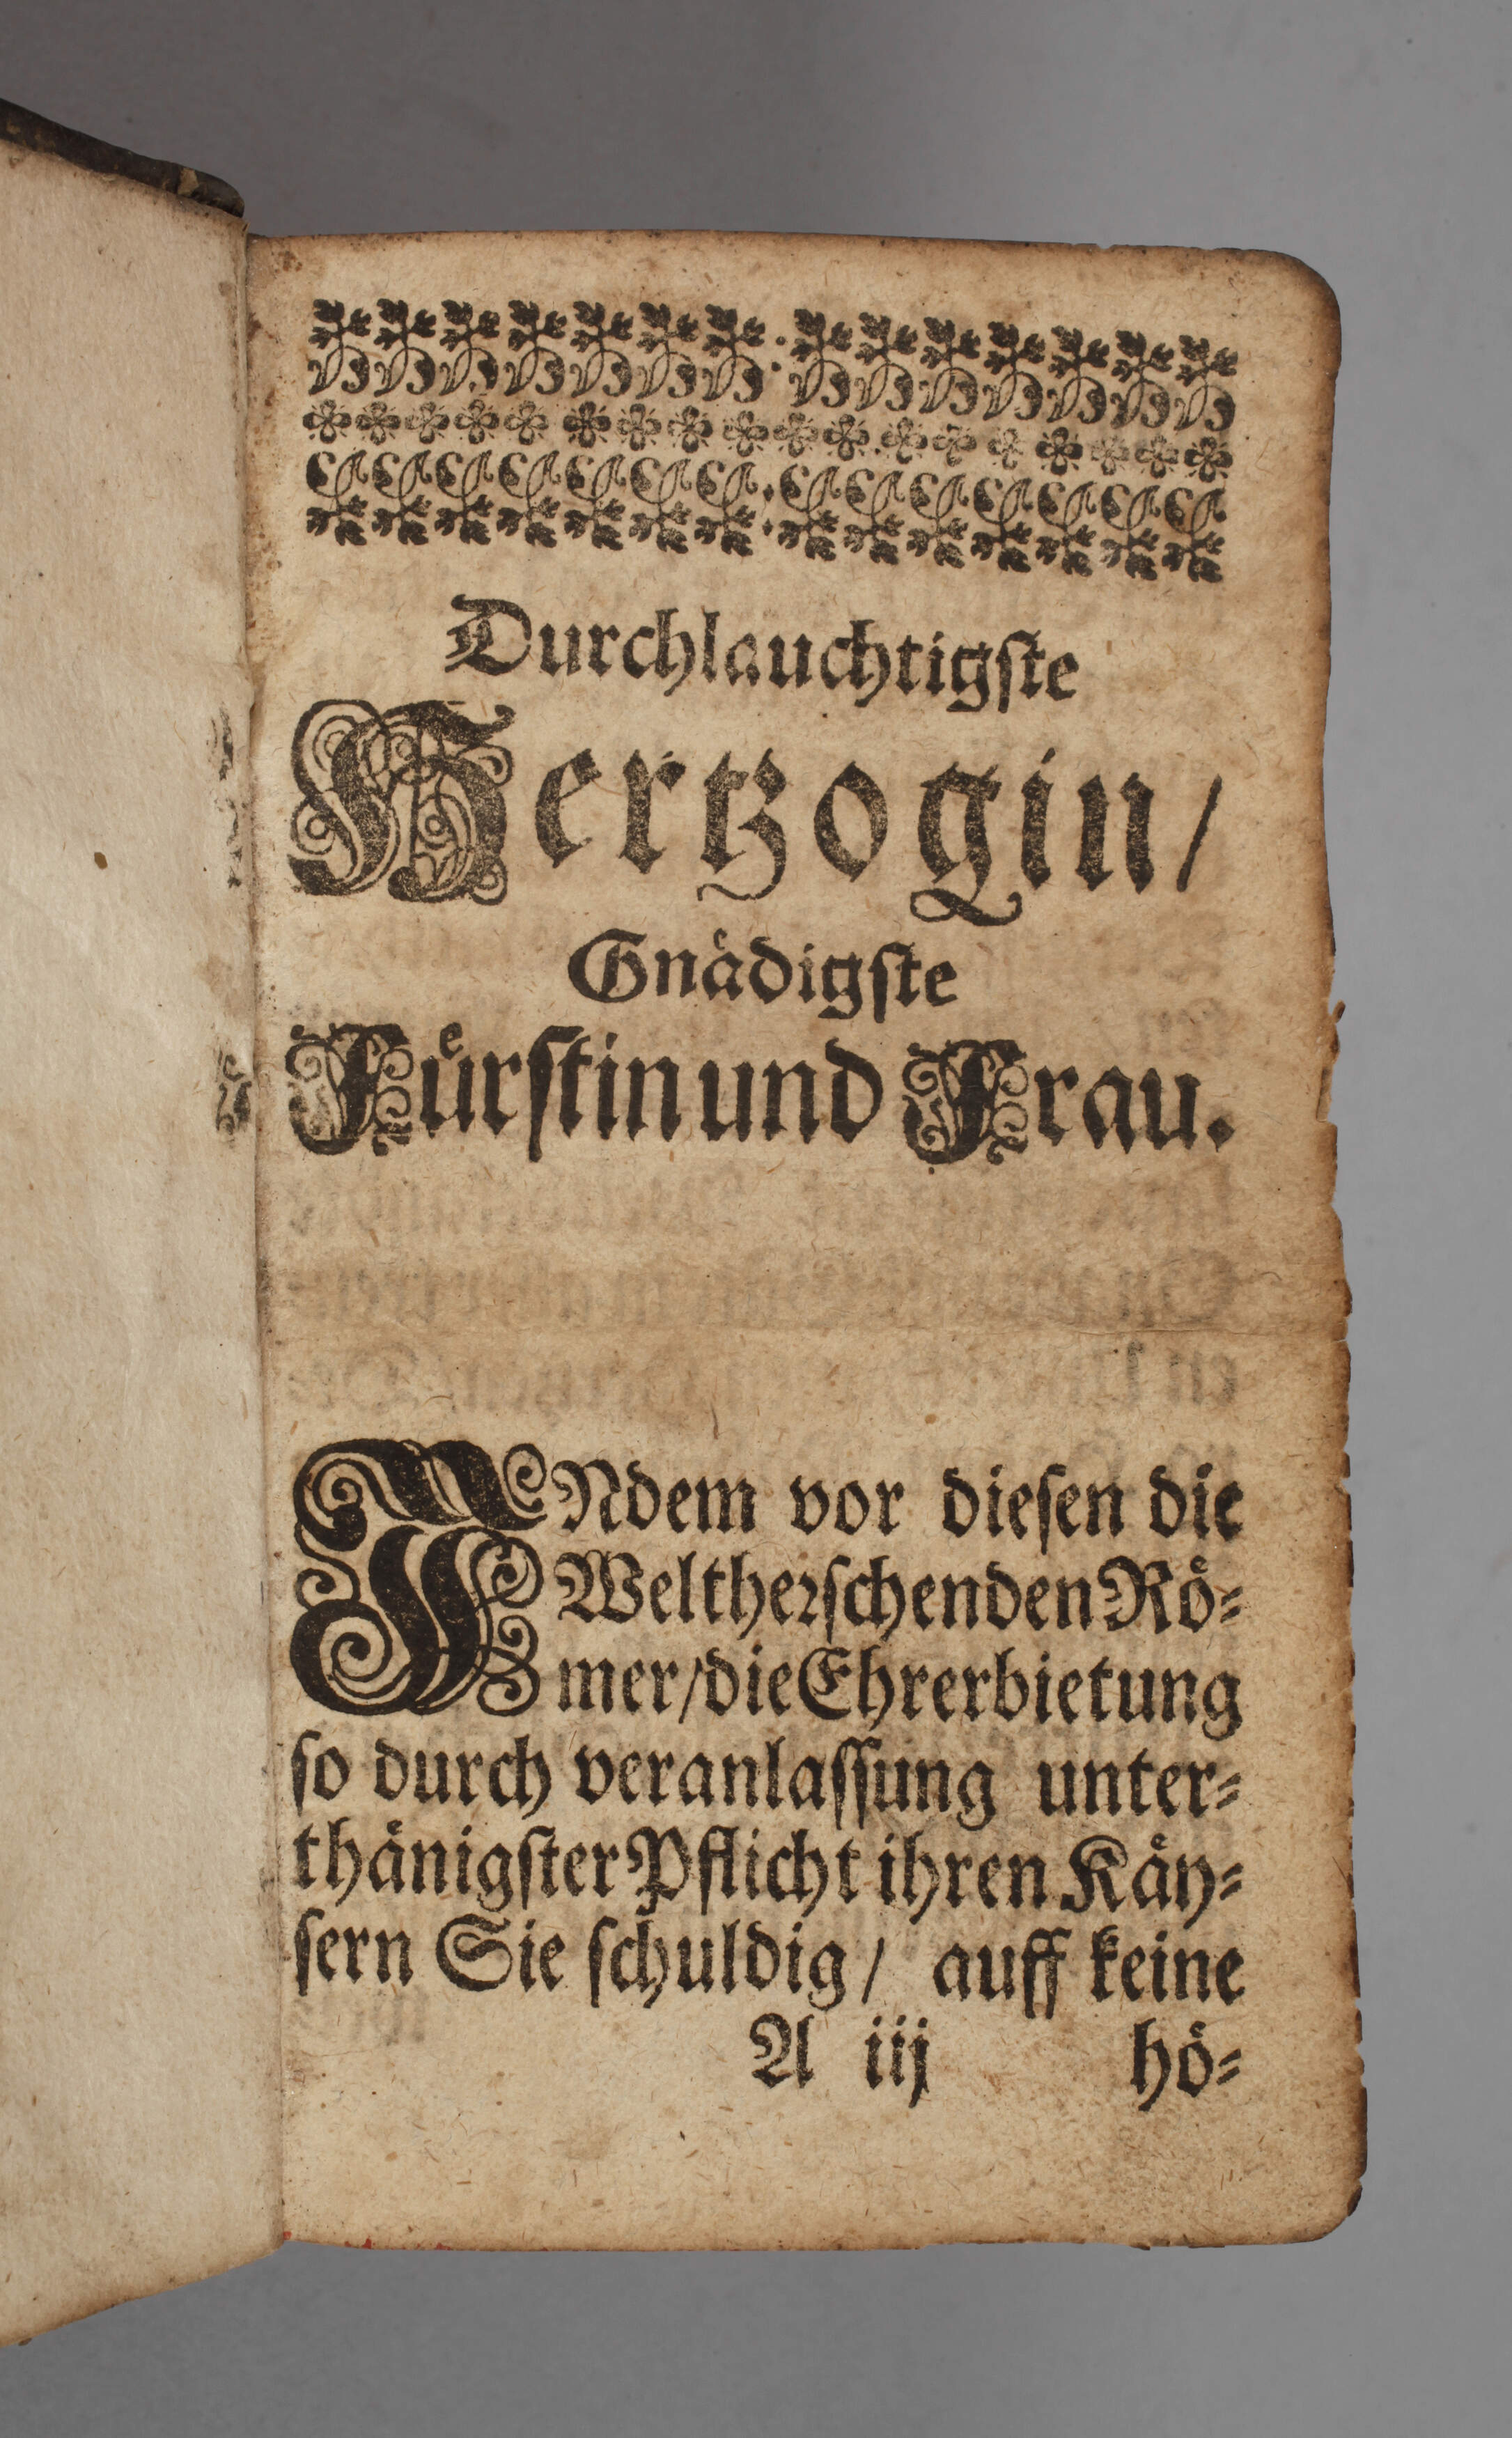 Durchlauchtigste
Hertzogin/
Gnaͤdigste
Fuͤrstin und Frau.
INdem vor diesen die
Weltherschenden Roͤ-
mer/die Ehrerbietung
so durch veranlassung unter-
thaͤnigster Pflicht ihren Kaͤy-
sern Sie schuldig/ auff keine
A iij hoͤ-